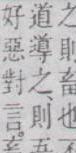 之則畜也
道導之則五
好惡對言